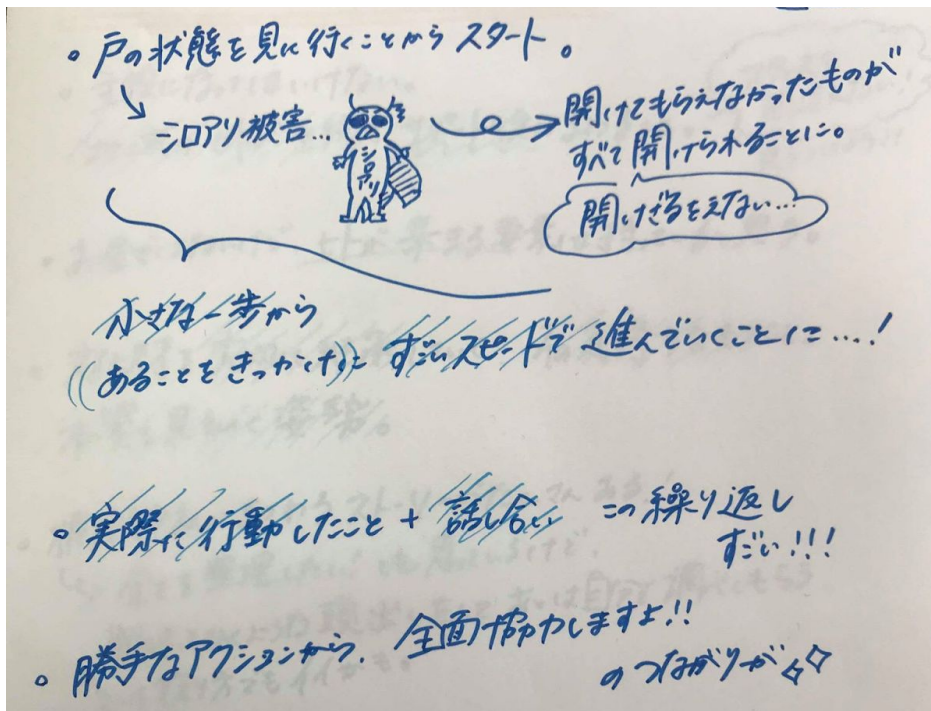 。戸の状態を見に行くことからスタート。
シロアリ被害…
シロアリ
開けてもらえなかったものが
すべて開けられることに。
開けざるをえない…
小さな一歩から
あることをきっかけに すごいスピードで進んでいくことに…!
。実際に行動したこと + 話し合い この繰り返し
すごい!!!
。勝手なアクションから、全面協力しますよ!!
のつながりが